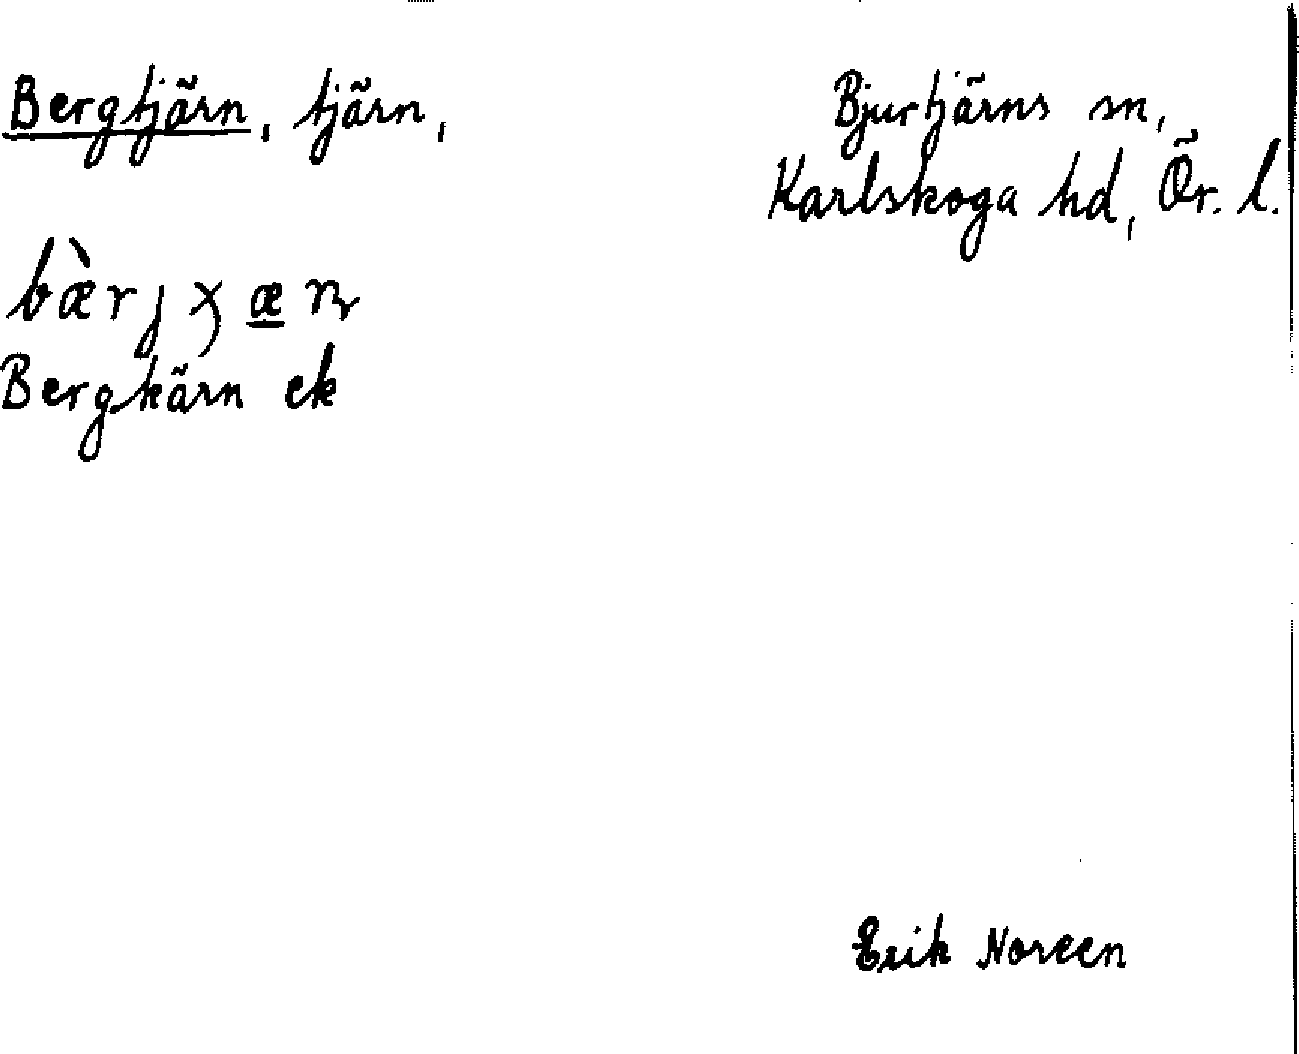 Bergtjärn, tjärn,
Bjurtjärns sn,
Karlskoga hd, Ör. l.
bær̀jχæn
Bergkärn ek
Erik Noreen